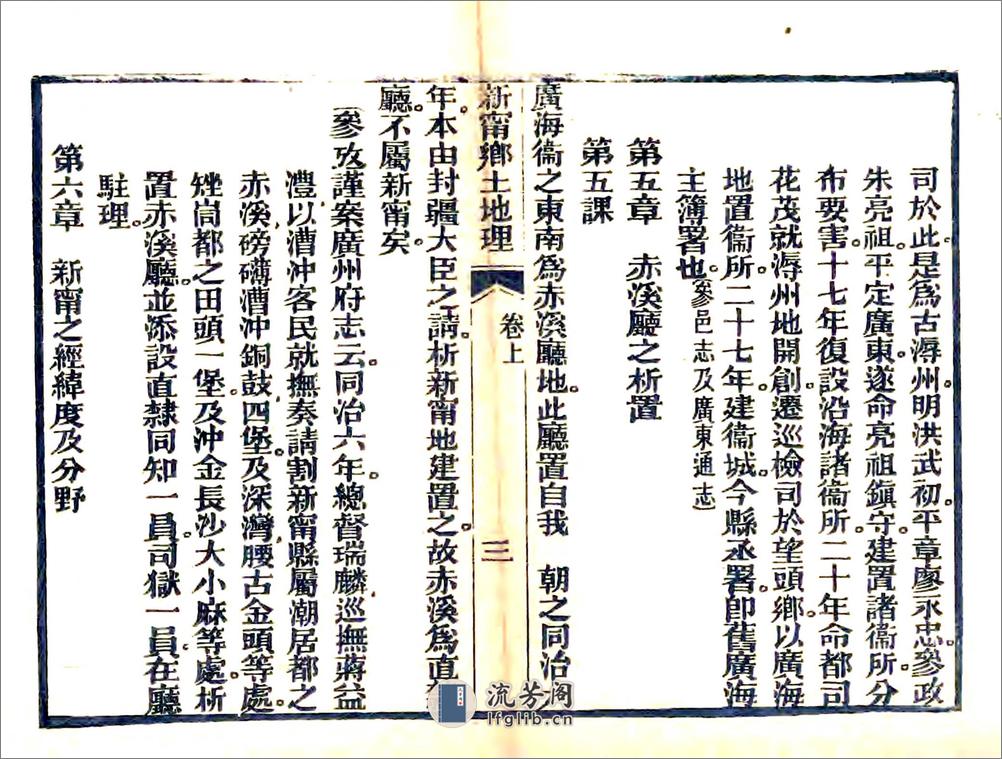 司於此是爲古潯州明洪武初平章廖永忠參政
朱亮祖平定廣東遂命亮祖鎮守建置諸衞所分
布要害十七年復設沿海諸衞所二十年命都司
花茂就潯州地開創遷巡檢司於望頭鄉以廣海
地置衞所二十七年建衞城今縣丞署卽舊廣海
主簿署也（參邑志及廣東通志）
第五章　赤溪廳之析置
第五課
廣海衞之東南爲赤溪廳地此廳置自我　朝之同治
新甯鄉土地理　卷上　三
年本由封疆大臣之請析新甯地建置之故赤溪爲直
廳不屬新甯矣
（參攷謹案廣州府志云同治六年總督瑞麟巡撫蔣益
澧以漕沖客民就撫奏請割新甯縣屬潮居都之
赤溪磅礴漕沖銅鼓四堡及深灣腰古金頭等處
矬峝都之田頭一堡及沖金長沙大小麻等處析
置赤溪廳並添設直隸同知一員司獄一員在廳
駐理
第六章　新甯之經緯度及分野
流芳阁
lfglib.cn